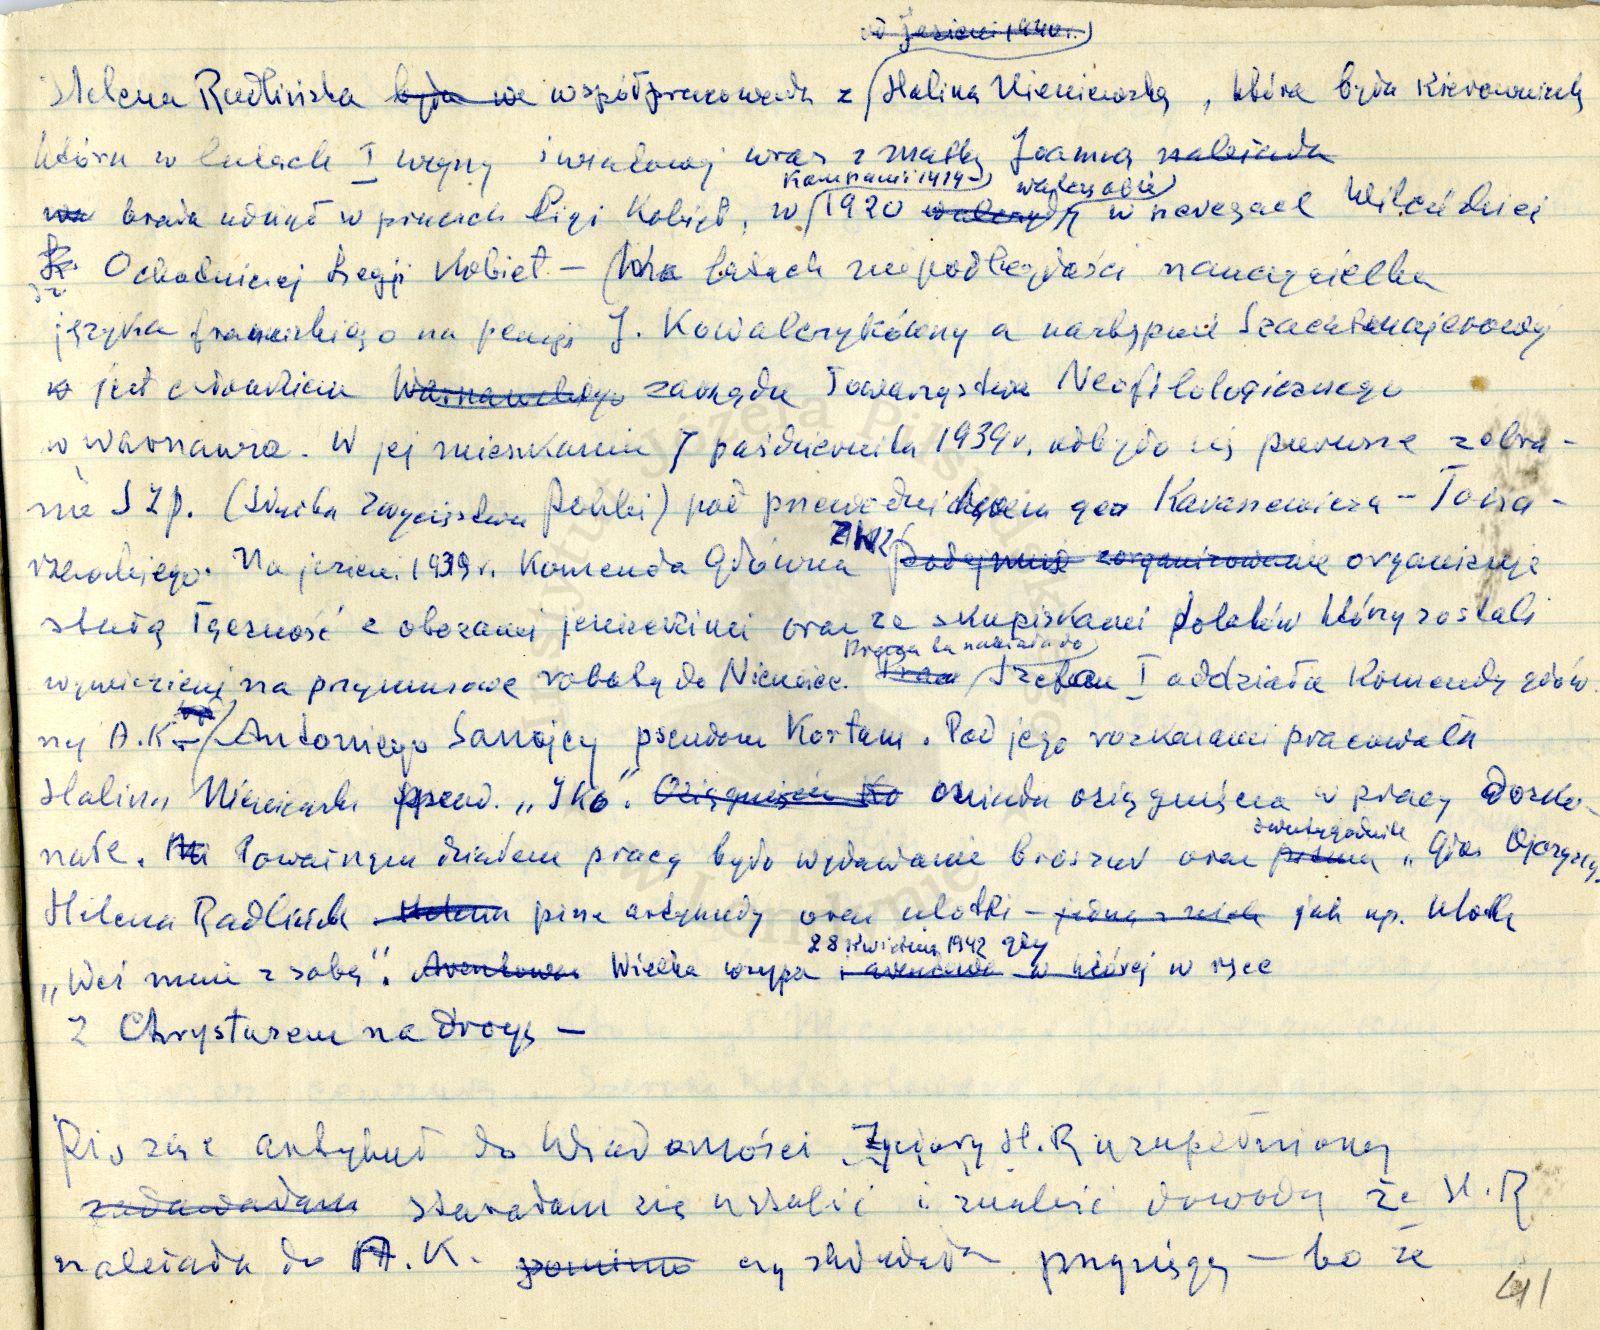 od jesieni 1940 r.
Helena Radlińska była we współpracowała z Halina Nieniewską, która była kierowniczką
która w latach I wojny światowej wraz z matką Joanną należała
Kampanii 1919- walcząc
brała udział w pracach Ligi Kobiet, w 1920 walczyła w szeregach Wileńskiej
Ochotniczej Legji Kobiet – w latach niepodległości nauczycielka
języka francuskiego na pensji J. Kowalczykówny a następnie Szachtmajerowej
jest członkiem Warszawskiego zarządu Towarzystwa Neofilologicznego
w Warszawie. W jej mieszkaniu 7 października 1939 r. odbyło się pierwsze zebra-
nie SZP. (Służba Zwycięstwu Polski) pod przewodnictwem gen Karaszewicza – Toka-
ZWZ
rzewskiego. Na jesieni 1939 r. Komenda Główna podejmuje zorganizowanie organizuje
stałą łączność z obozami jenieckimi oraz ze skupiskami Polaków którzy zostali
Praca ta należała do
wywiezieni na przymusowe roboty do Niemiec. Praca Szefa I oddziału Komendy głów-
nej A.K. Antoniego Sanojcy pseudon Kortum. Pod jego rozkazami pracowała
Halina Nieniewska pseud. "Ika". Osiągnięcia miała osiągnięcia w pracy dosko-
dwutygodnik
nałe. Poważnym działem pracy było wydawanie broszur oraz pisma "Głos Ojczyzny.
Helena Radlińska Helena pisze artykuły oraz ulotki – jedną z nich jak np. ulotkę
28 kwietnia 1942 gdy
"Weź mnie z sobą". Aresztowa Wielka wsypa i aresztowa w której w ręce
Z Chrystusem na drogę –
Pisząc artykuł do Wiadomości Życiorys H.R uzupełniony
zadawałam starałam się ustalić i znaleźć dowody że H.R
należała do A.K. pomimo czy składała przysięgę – bo że
41
Instytut Józefa Piłsudskiego w Londynie